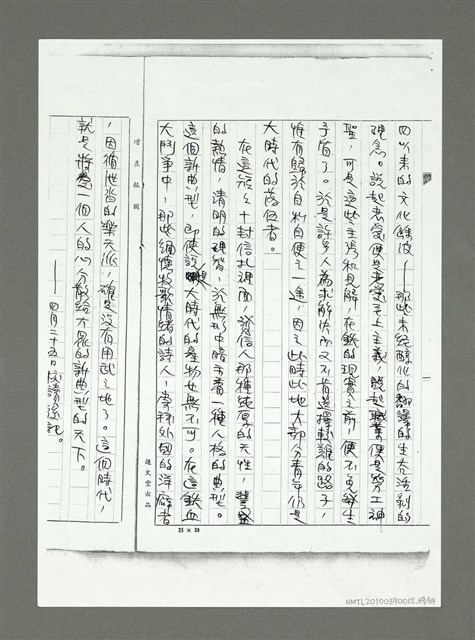 四以來的文化餘波——那些未經醇化的翻譯的生吞活剝的
理念。說起戀愛便是戀愛至上主義，說起職業便是勞工神
聖，可是這些主張和見解，在鐵的現實之前，便不可解生
矛盾了。於是許多人為求解決而又不肯選擇艱難的路子，
惟有歸於自私自便之一途，因之此時此地大部分青年仍是
大時代的落伍者。
在這孩之十封信札裡面，發信人那種純厚的天性，豐盛
的熱情，清明的理智，於無形中暗示著一種人格的典型。
這個新典型，即使說是大時代的產物也無不可。在這鐵血
大鬥爭中，那些緬懷牧歌情緒的詩人，崇拜外國的洋癖者
，因循泄沓的樂天派，確是沒有用武之地了。這個時代，
就是將愛一個人的心分散給不羈的新典型的天下。
——四月二十五日校讀後記。
增直敘圖
進文堂出品
25×20
NMTL20100390012, 69/69